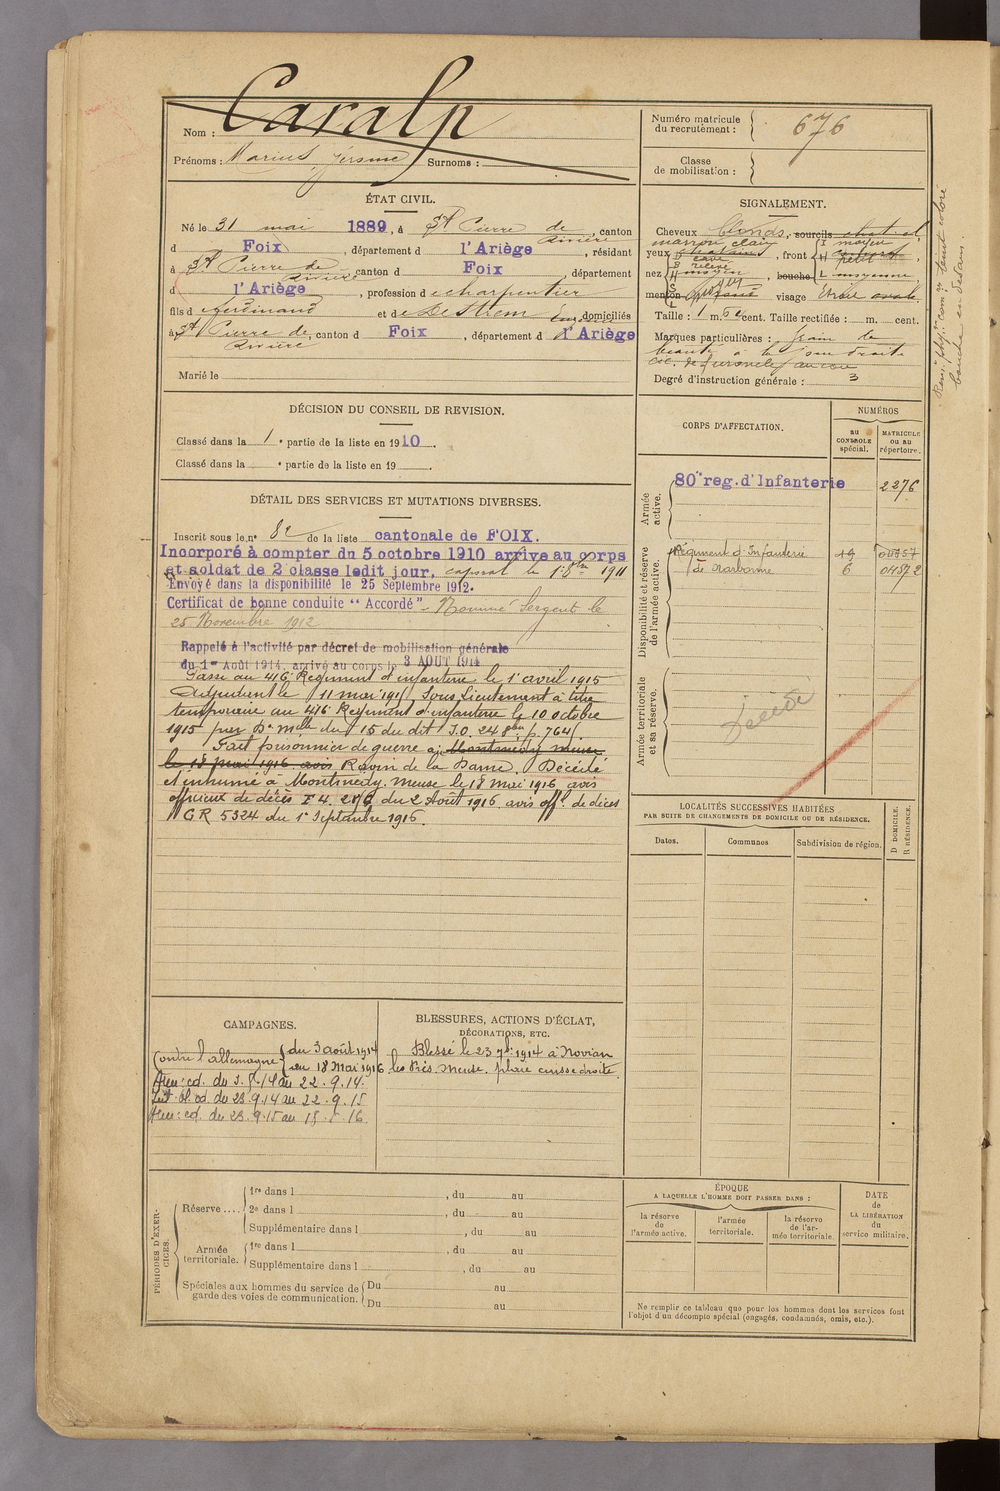 Nom : Caralp
Prénoms : Marius Jérome Surnoms :
Numéro matricule
du recrutement : 676
Classe
de mobilisation :
ÉTAT CIVIL.
Né le 31 mai 1889, à St Pierre de
Rivière, canton
d Foix, département d l'Ariège, résidant
à St Pierre de
Rivière, canton d Foix, département
d l'Ariège, profession de charpentier
fils d Ferdinand et de Destrem, domiciliés
à St Pierre de
Rivière, canton d Foix, département d l'Ariège
Marié le
SIGNALEMENT.
Cheveux blonds, sourcils
marron clair
yeux, front
nez moyen, bouche moyenne
menton, visage ovale.
Taille : 1 m. cent. Taille rectifiée : m. cent.
Marques particulières : grain de
beauté à la joue droite
Degré d'instruction générale : 3
teint coloré
DÉCISION DU CONSEIL DE REVISION.
Classé dans la 1e partie de la liste en 1910.
Classé dans la e partie de la liste en 19 .
DÉTAIL DES SERVICES ET MUTATIONS DIVERSES.
Inscrit sous le no 82 de la liste cantonale de FOIX.
Incorporé à compter du 5 octobre 1910 arrivé au corps
et soldat de 2e classe ledit jour, caporal le 1911
Envoyé dans la disponibilité le 25 Septembre 1912.
Certificat de bonne conduite "Accordé" - Nommé Sergent le
25 Novembre 1912
Rappelé à l'activité par décret de mobilisation générale
du 1er Août 1914, arrivé au corps le 3 AOUT 1914
Passé au 416e Régiment d'infanterie le 1er avril 1915
Adjudant le 11 mai 1915 Sous Lieutenant à titre
temporaire au 416e Régiment d'infanterie le 10 octobre
1915 par Dn mlle du 15 du dit J.O. 248 p. 7641.
Fait prisonnier de guerre à Montmédy meuse
le 18 mai 1916 avis Ravin de la Dame. Décédé
et inhumé à Montmédy. Meuse le 18 mai 1916 avis
officieux de décès F4. 286 du 2 Août 1916 avis offel de décès
GR 5324 du 1er Septembre 1916.
CORPS D'AFFECTATION.
NUMÉROS
au
CONTRÔLE
spécial.
MATRICULE
ou au
répertoire.
Armée
active.
80e reg. d'Infanterie 2276
Disponibilité et réserve
de l'armée active.
Régiment d'Infanterie 19
de Narbonne 6
Armée territoriale
et sa réserve.
Décédé
LOCALITÉS SUCCESSIVES HABITÉES
PAR SUITE DE CHANGEMENTS DE DOMICILE OU DE RÉSIDENCE.
Dates.
Communes
Subdivision de région.
D DOMICILE.
R RÉSIDENCE.
CAMPAGNES.
Contre l'allemagne du 3 août 1914
au 18 Mai 1916
du 3.8.14 au 22.9.14.
du 23.9.14 au 22.9.15
du 23.9.15 au 18.5.16
BLESSURES, ACTIONS D'ÉCLAT,
DÉCORATIONS, ETC.
Blessé le 23 7bre 1914 à Novian
les Prés. Meuse. plaie cuisse droite.
PÉRIODES D'EXERCICES.
Réserve....
1re dans l , du au
2e dans l , du au
Supplémentaire dans l , du au
Armée
territoriale.
1re dans l , du au
Supplémentaire dans l , du au
Spéciales aux hommes du service de
garde des voies de communication.
Du au
Du au
ÉPOQUE
A LAQUELLE L'HOMME DOIT PASSER DANS :
la réserve
de
l'armée active.
l'armée
territoriale.
la réserve
de l'ar-
mée territoriale.
DATE
de
LA LIBÉRATION
du
service militaire.
Ne remplir ce tableau que pour les hommes dont les services font
l'objet d'un décompte spécial (engagés, condamnés, omis, etc.).